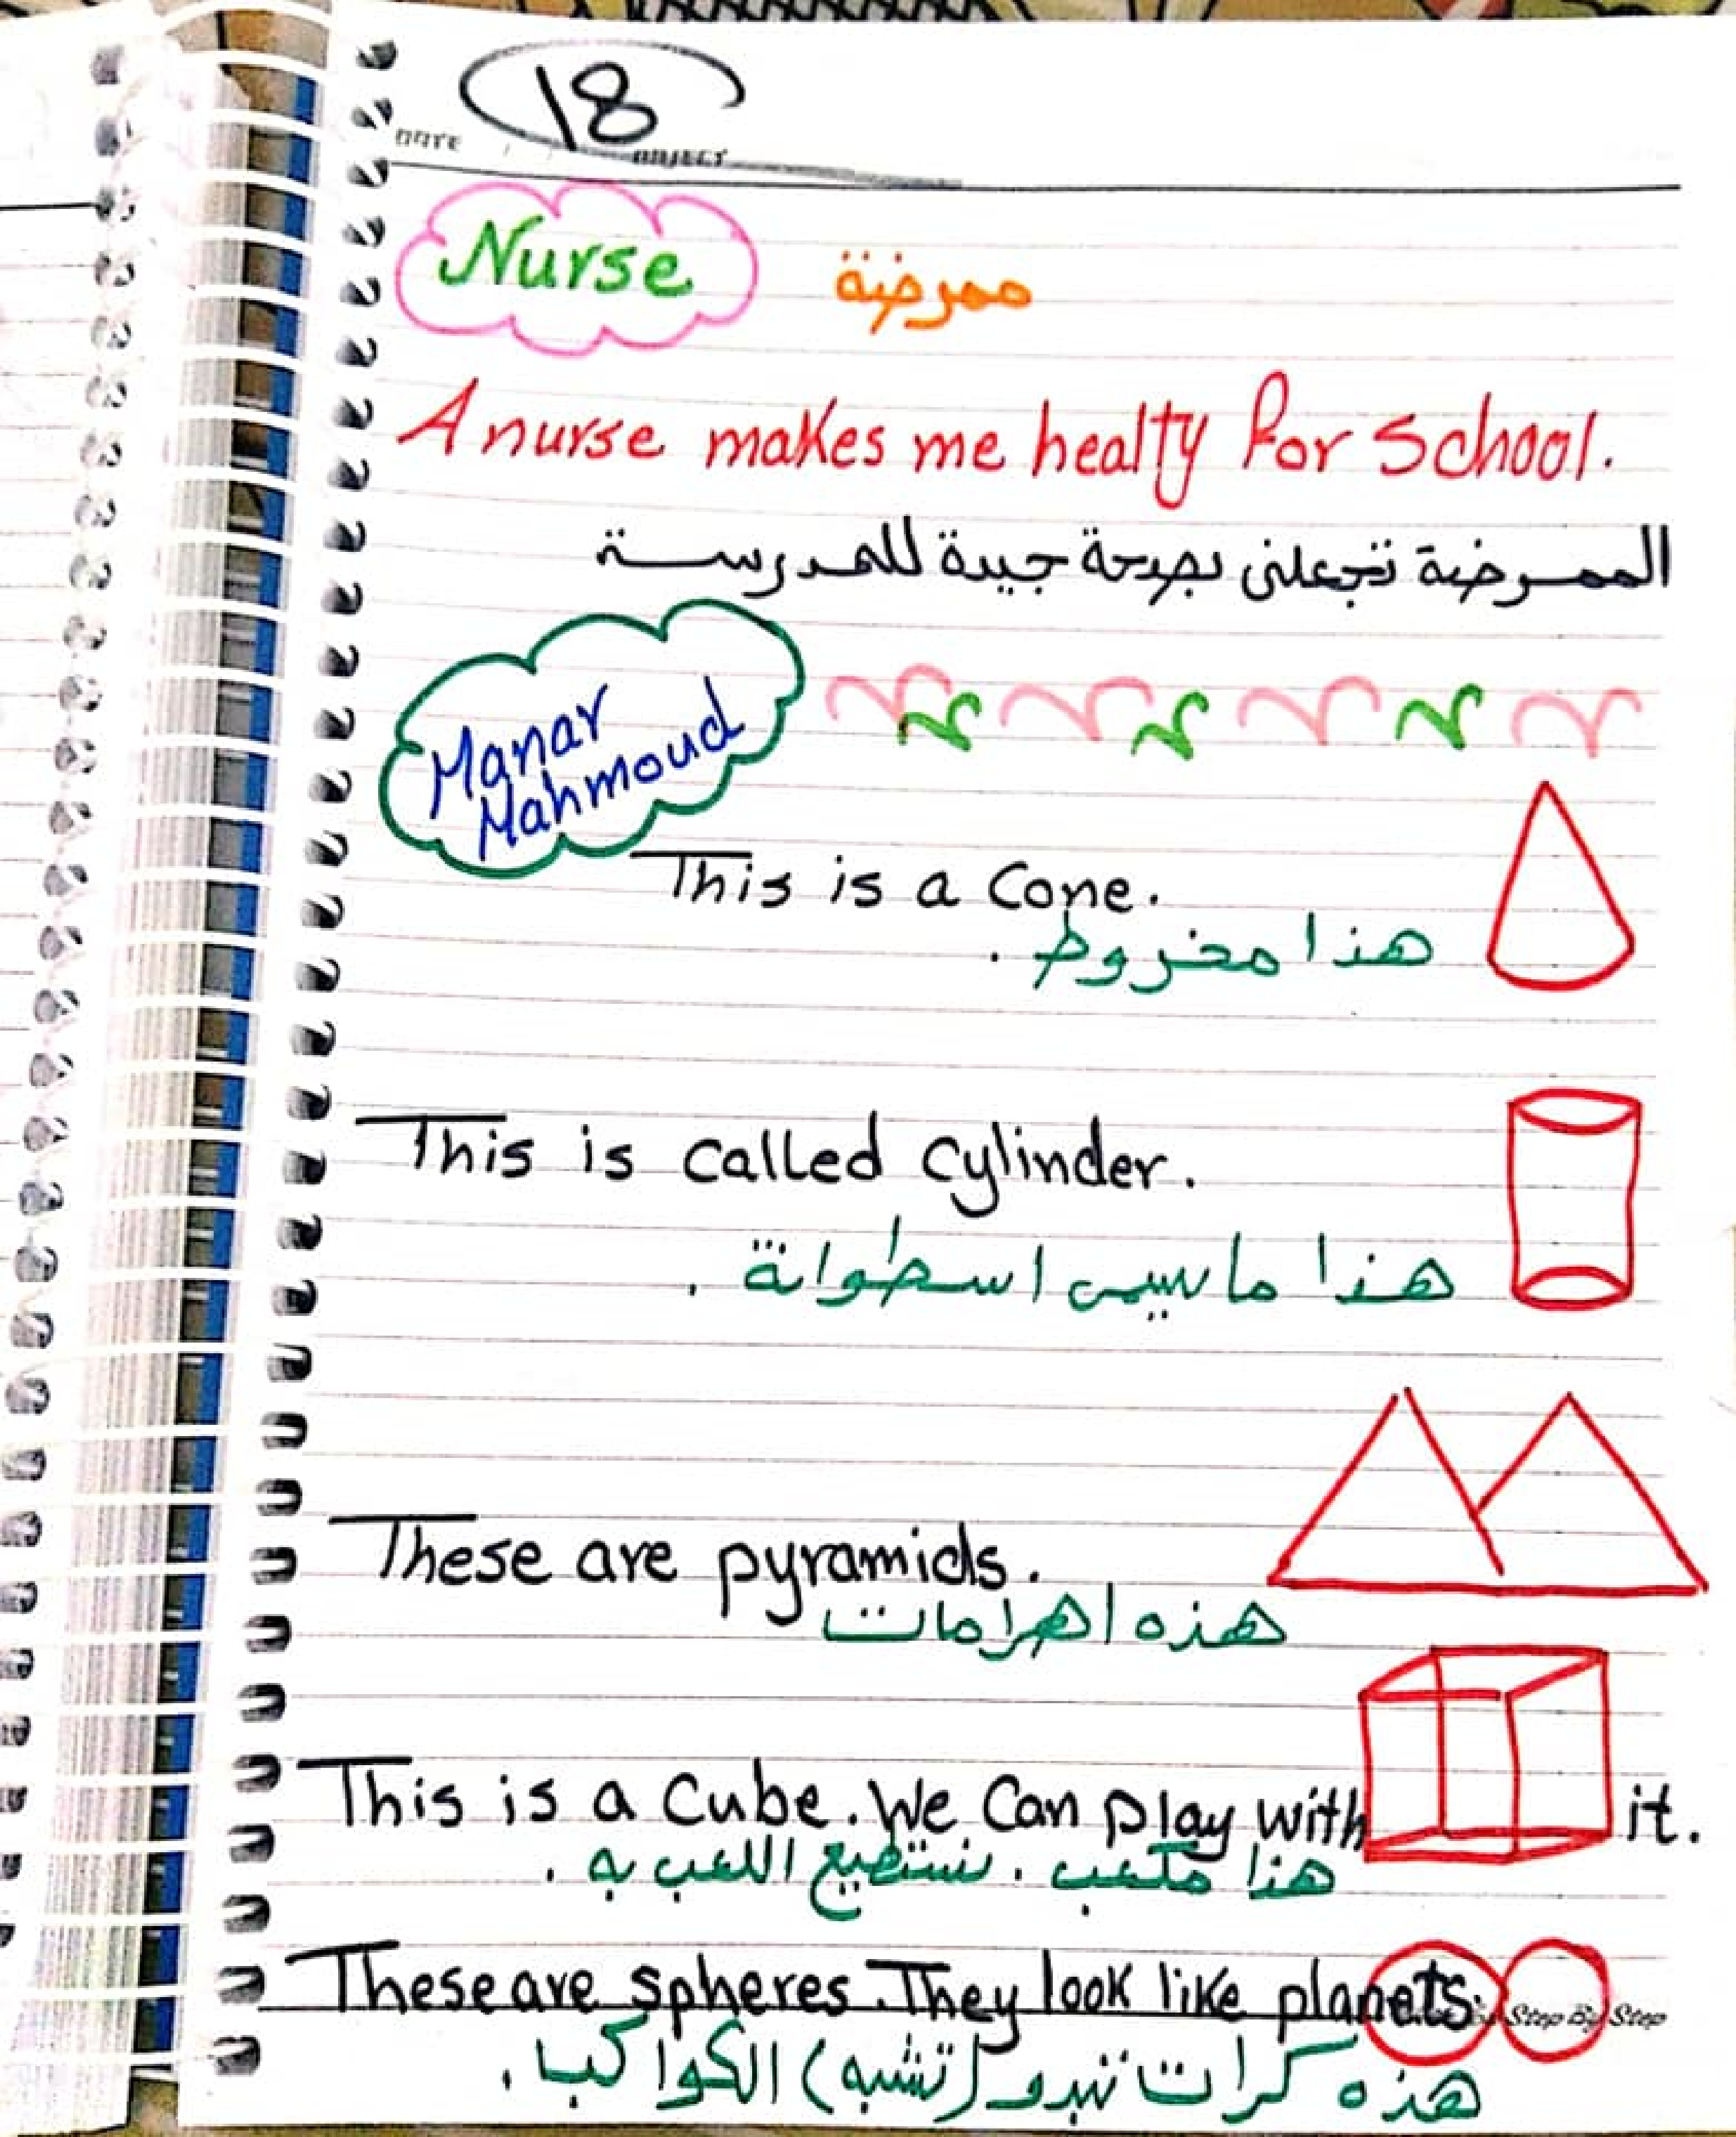 18
DATE / / OBJECT
Nurse ممرضة
A nurse makes me healty for School.
الممرضة تجعلنى بصحة جيدة للمدرسة
Manar
Mahmoud
This is a Cone.
هذا مخروط .
This is called Cylinder.
هذا ما يسمى اسطوانة .
These are pyramids.
هذه اهرامات
This is a Cube. We Can play with it.
هذا مكعب . نستطيع اللعب به .
These are spheres. They look like planets.
Step By Step
هذه كرات تبدو (تشبه) الكواكب .